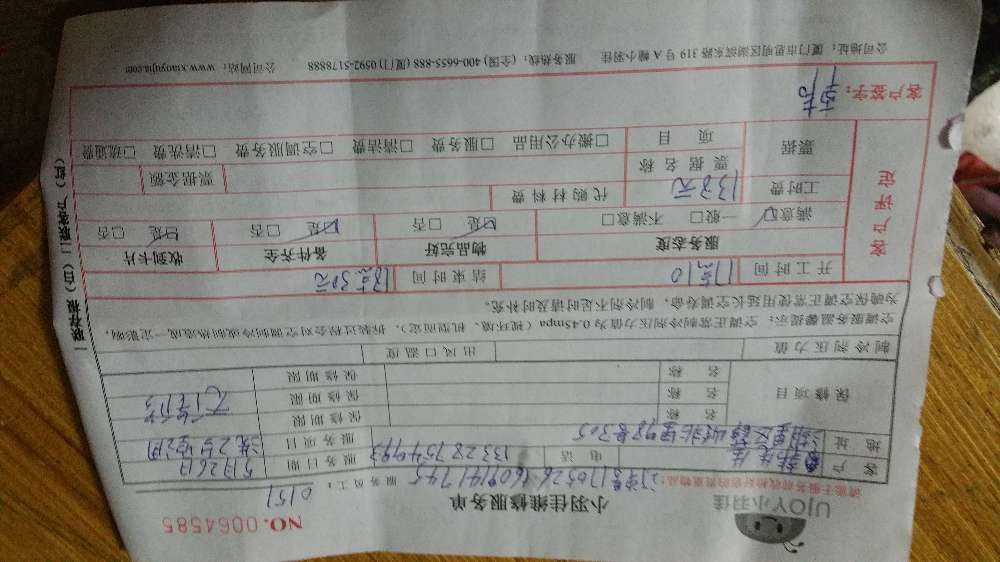 UJOY小羽佳
小羽佳维修服务单
NO. 0064585
请您于服务前收拾好您的贵重物品!
订单号1705261609141745
服务员工: 0151
客户
电话 13328754993
服务日期 5月26日
地址
服务项目
保修项目
名称
保修期限
名称
保修期限
名称
保修期限
制冷剂压力值
出风口温度
空调服务温馨提示:空调正常制冷剂压力值为0.45mpa(视环境、机型而定),拆装过程会对空调制冷或热造成一定影响,
为确保空调正常使用延长空调寿命,制冷剂不足时请及时补充。
客户评定
开工时间 17点10
结束时间
服务态度
物品完好
备件齐全
收到卡片
满意☑ 一般□ 不满意□
☑是 □否
☑是 □否
☑是 □否
工时费 133元
代购材料费
票据
票据名称
票据金额
项目
□搬办公用品 □服务费 □清洁费 □空调服务费 □清洗费 □疏通费
客户签字:
公司地址:厦门市思明区湖滨东路319号A幢小羽佳 服务热线:(全国) 400-6655-888 (厦门) 0592-5178888 公司网站:www.xiaoyujia.com
一联存根(白) 二联客户(红)